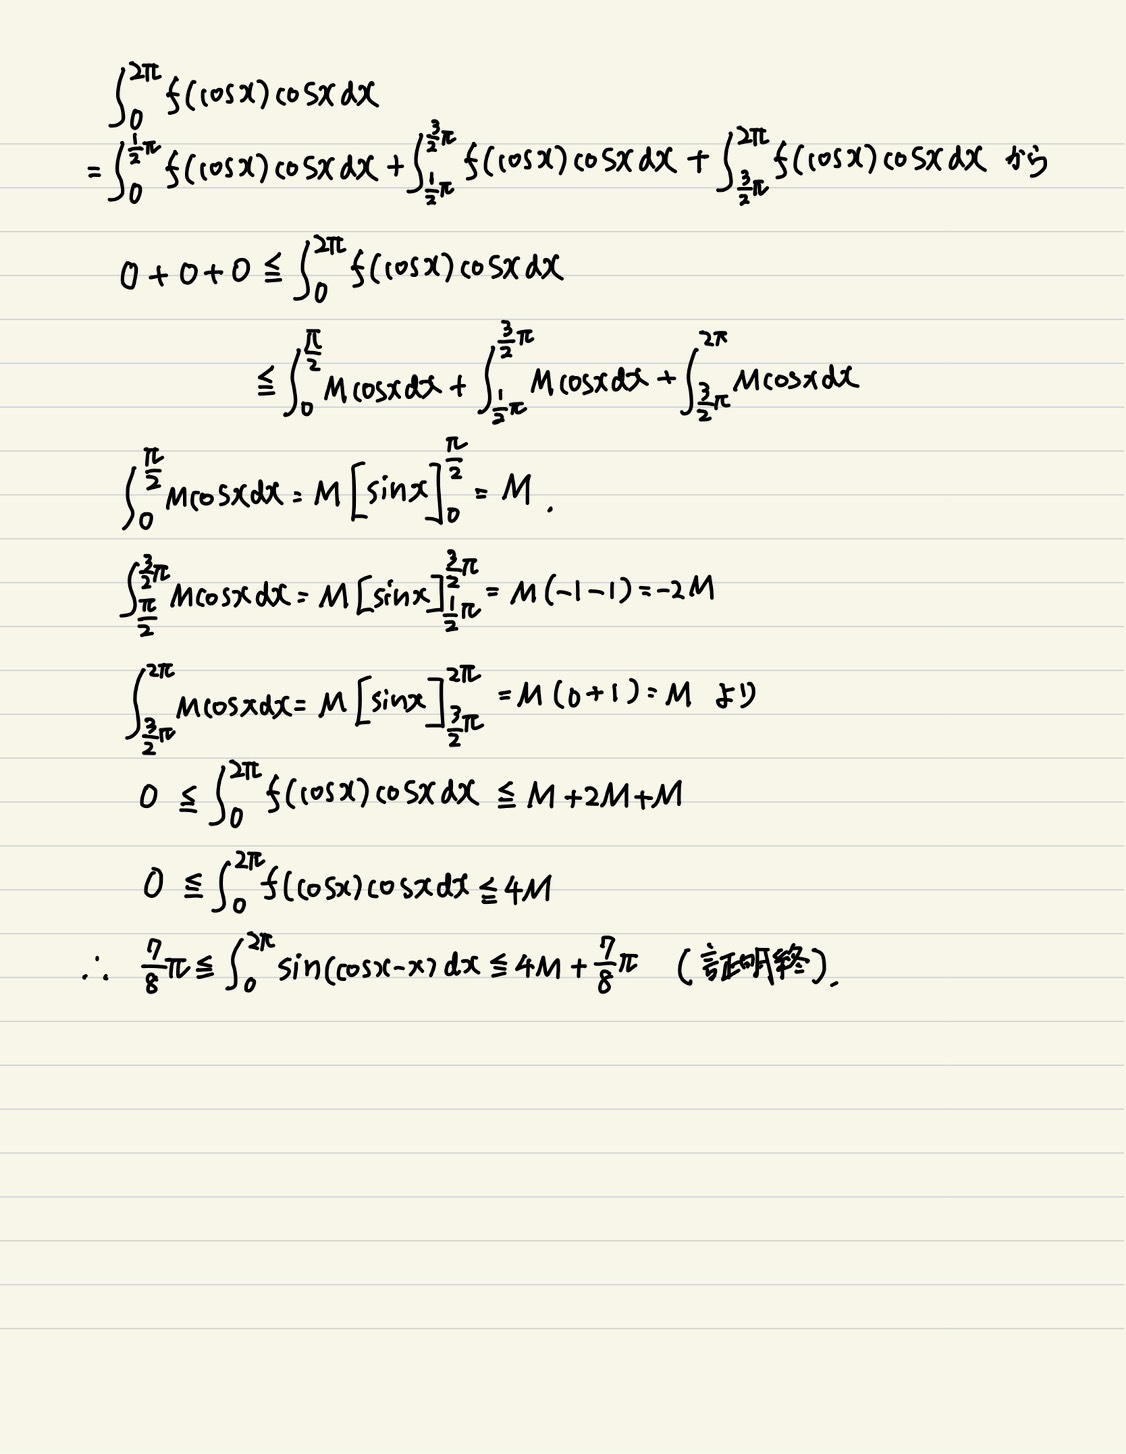 ∫₀^{2π} f(cosx)cosxdx
= ∫₀^{½π} f(cosx)cosxdx + ∫_{½π}^{3/2π} f(cosx)cosxdx + ∫_{3/2π}^{2π} f(cosx)cosxdx から
0+0+0 ≦ ∫₀^{2π} f(cosx)cosxdx
≦ ∫₀^{π/2} Mcosxdx + ∫_{½π}^{3/2π} Mcosxdx + ∫_{3/2π}^{2π} Mcosxdx
∫₀^{π/2} Mcosxdx = M[sinx]₀^{π/2} = M.
∫_{π/2}^{3/2π} Mcosxdx = M[sinx]_{½π}^{3/2π} = M(-1-1) = -2M
∫_{3/2π}^{2π} Mcosxdx = M[sinx]_{3/2π}^{2π} = M(0+1) = M より
0 ≦ ∫₀^{2π} f(cosx)cosxdx ≦ M+2M+M
0 ≦ ∫₀^{2π} f(cosx)cosxdx ≦ 4M
∴ 7/8π ≦ ∫₀^{2π} sin(cosx-x)dx ≦ 4M + 7/8π (証明終).